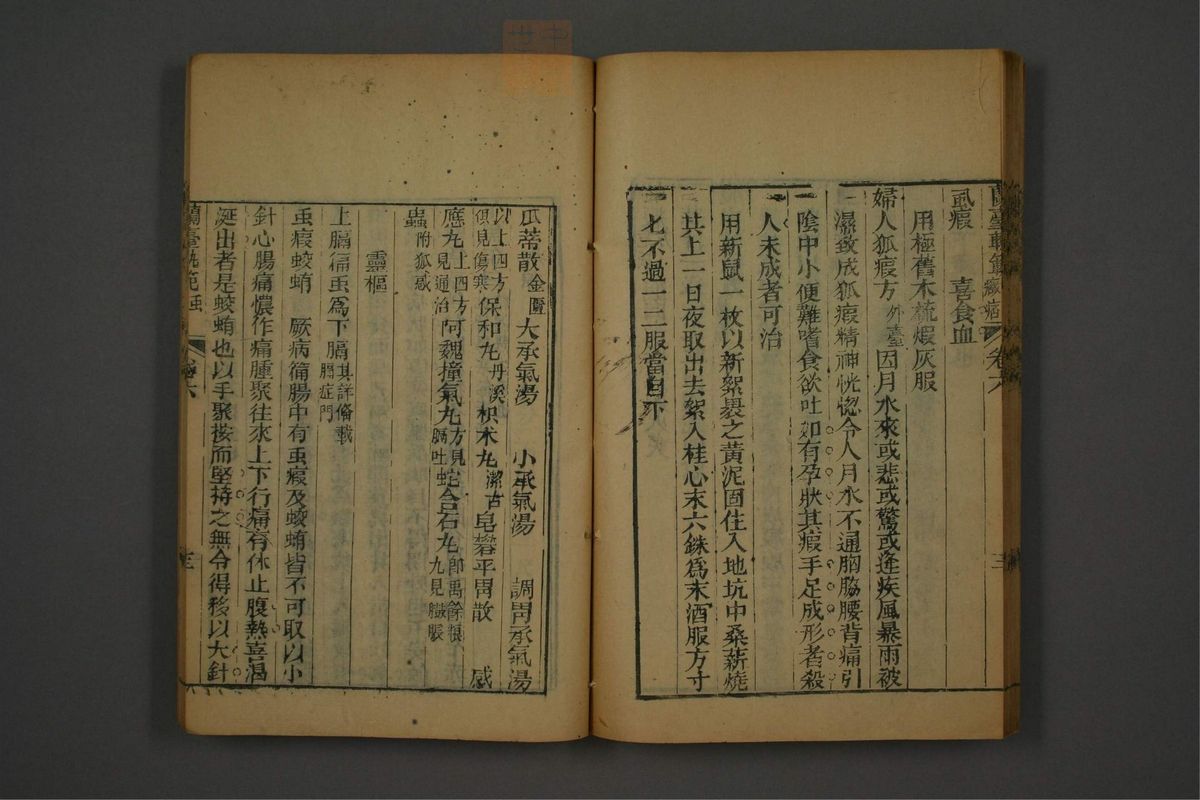 蘭臺軌範 癥瘕 卷六 三
虱瘕 喜食血
用極舊木梳煆灰服
婦人狐瘕方外臺因月水來或悲或驚或逢疾風暴雨被
濕致成狐瘕精神恍惚令人月水不通胸脇腰背痛引
陰中小便難嗜食欲吐如有孕狀其瘕手足成形者殺
人未成者可治
用新鼠一枚以新絮裹之黃泥固住入地坑中桑薪燒
其上一日夜取出去絮入桂心末六銖爲末酒服方寸
匕不過一二服當自下
瓜蒂散金匱 大承氣湯 小承氣湯 調胃承氣湯
以上四方俱見傷寒 保和丸丹溪 枳朮丸潔古 皂礬平胃散 感
應丸上四方見通治 阿魏撞氣丸方見膈吐 蛇含石丸即禹餘糧丸見臌脹
蟲附狐惑
靈樞
上膈篇虫爲下膈其詳備載膈症門
虫瘕蛟蛕 厥病篇腸中有虫瘕及蛟蛕皆不可取以小
針心腸痛憹作痛腫聚往來上下行痛有休止腹熱喜渴
涎出者是蛟蛕也以手聚按而堅持之無令得移以大針
蘭臺軌範 蟲 卷六